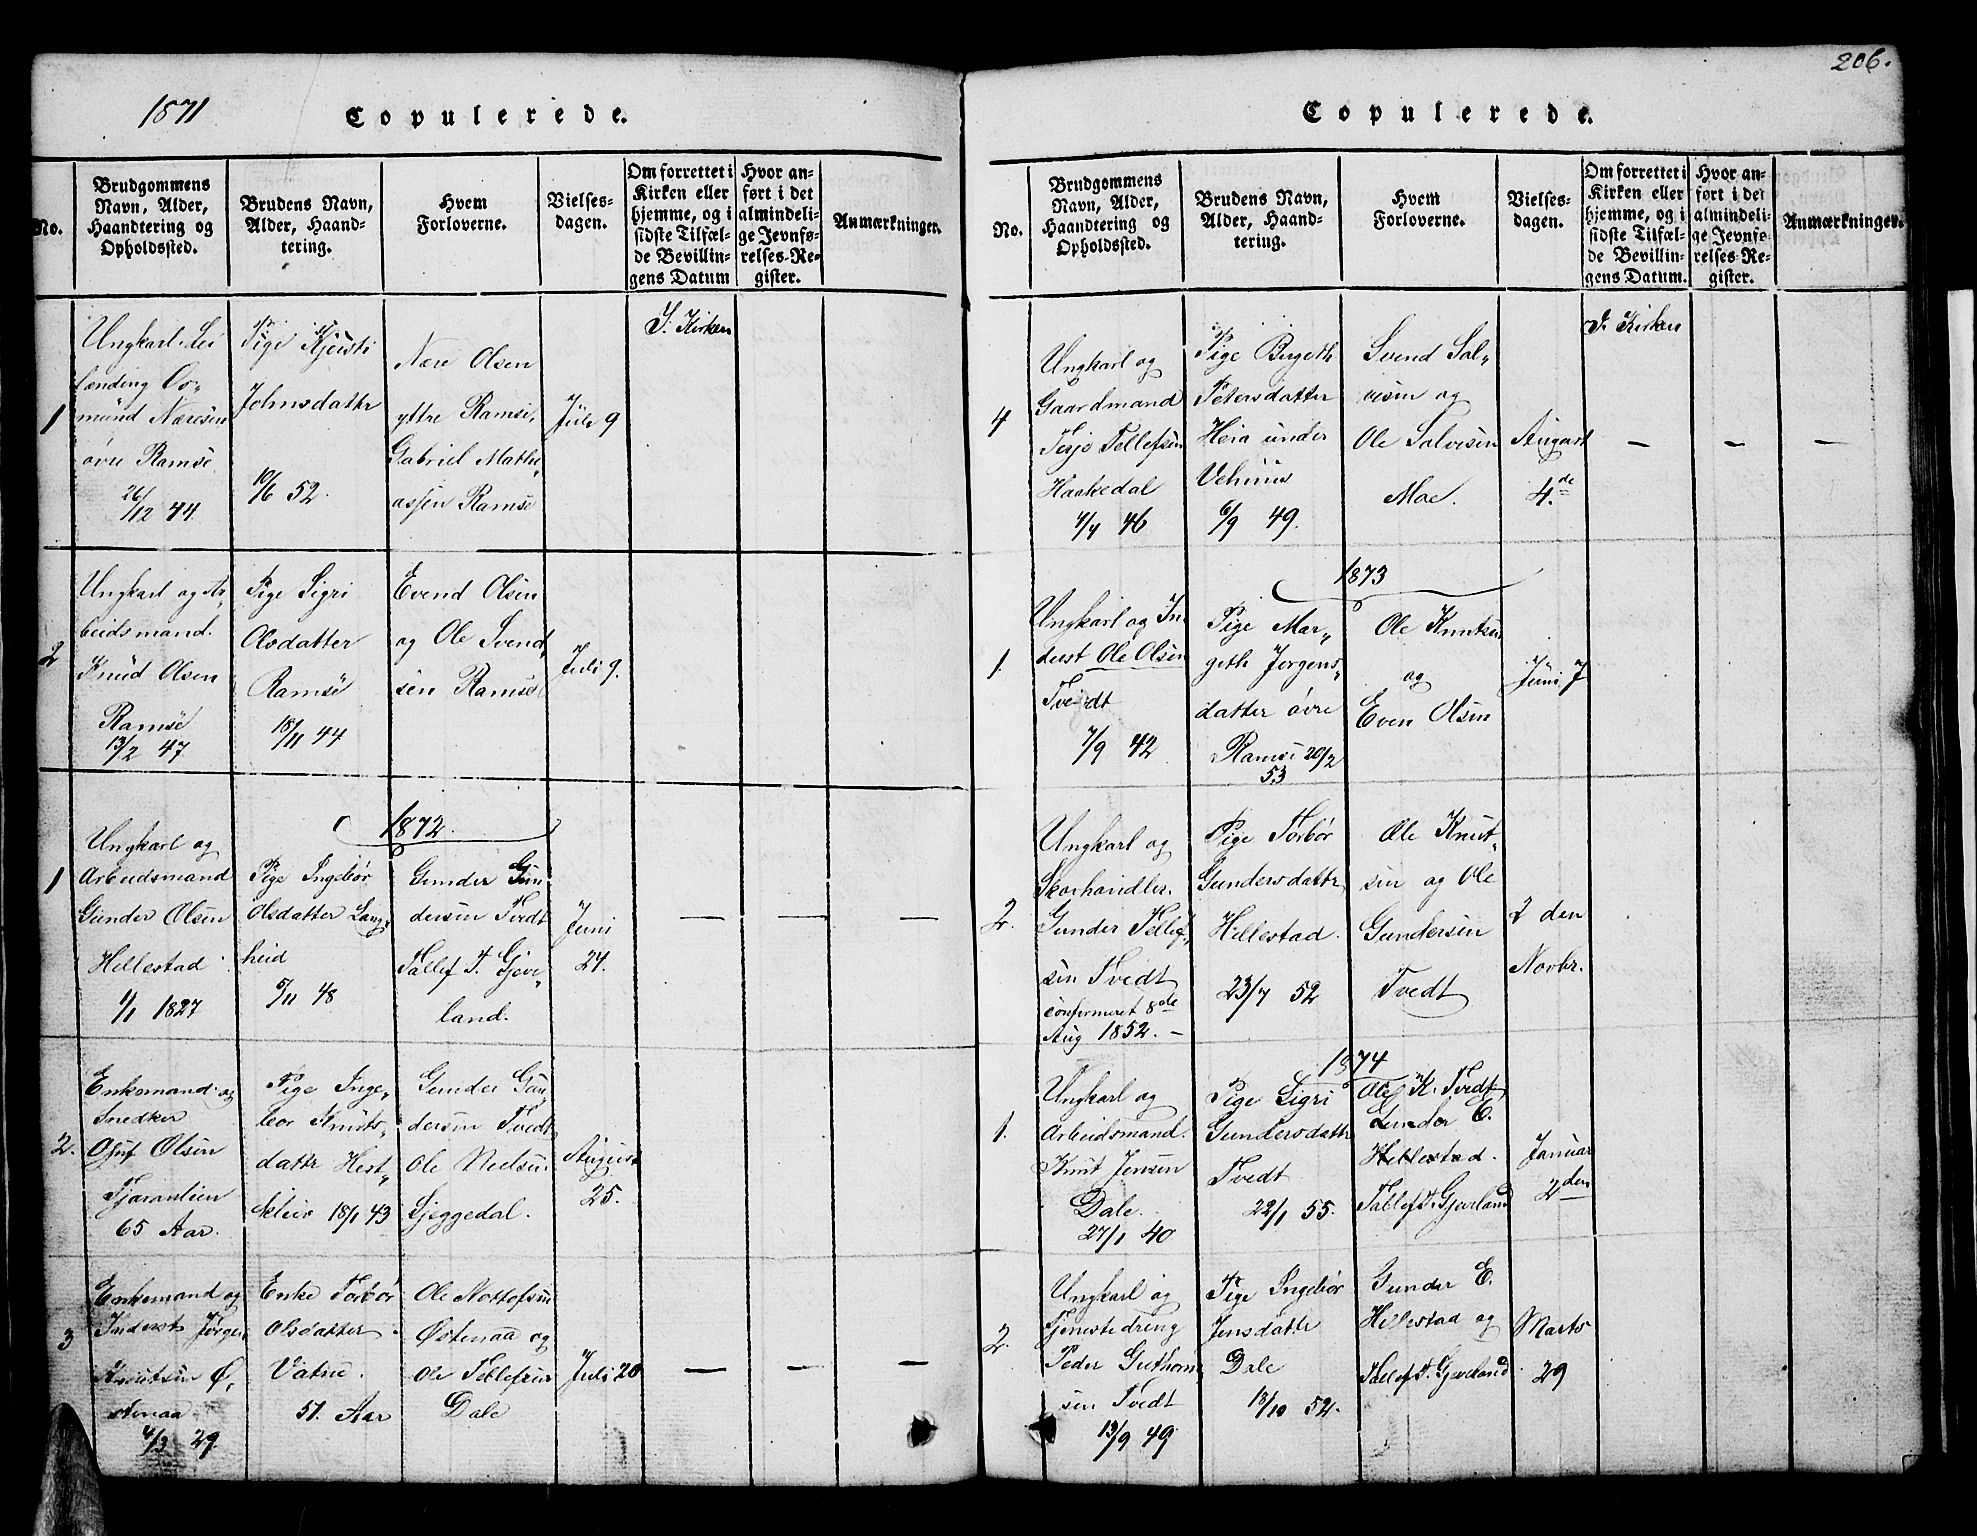 206.
1871
Copulerede.
No.
Brudgommens
Navn, Alder,
Haandtering og
Opholdssted.
Brudens Navn,
Alder, Haand-
tering.
Hvem
Forloverne.
Vielses-
dagen.
Om forrettet i
Kirken eller
hjemme, og i
sidste Tilfæl-
de Bevillin-
gens Datum
Hvor an-
ført i det
almindeli-
ge Jevnfø-
relses-Re-
gister.
Anmærkninger.
1
Ungkarl
lænding
mund Næresen
øvre Ramse
26/12 44.
Pige Kjersti
Johnsdattr
10/6 52.
Nære Olsen
yttre Ramse,
Gabriel Mathi„
assen Ramse
Juli 9
I. Kirken
2
Ungkarl og Ar„
beidsmand.
Knud Olsen
Ramse
13/2 47
Pige Sigri
Olsdatter
Ramse
18/11 44
Evend Olsen
og Ole Svend„
sen Ramse
Juli 9.
1872.
1
Ungkarl og
Arbeidsmand
Gunder Olsen
Hellestad
1/1 1827
Pige Ingebor
Olsdatter Lang„
heid
5/11 48
Gunder Gun
dersen Tvedt
Tallef T. Gjeve„
land.
Juni
24.
— — —
2.
Enkemand og
Snedker
Osuf Olsen
Tjarantien
65 Aar.
Pige Inge„
bor Knuts„
dattr Hest„
18/1 43
Gunder Gun
dersen Tvedt
Ole Neelsen
Sjeggedal.
August
25.
3
Enkemand og
Inderst Jørgen
Knutsen Ø„
stenaa
4/3 29.
Enke Torbor
Olsdatter
Vatne.
51. Aar
Ole Nottofsen
Østenaa og
Ole Tellefsen
Dale
Juli 20
— — —
Copulerede.
No.
Brudgommens
Navn, Alder,
Haandtering og
Opholdssted.
Brudens Navn,
Alder, Haand-
tering.
Hvem
Forloverne.
Vielses-
dagen.
Om forrettet i
Kirken eller
hjemme, og i
sidste Tilfæl-
de Bevillin-
gens Datum.
Hvor an-
ført i det
almindeli-
ge Jevnfø-
relses-Re-
gister.
Anmærkninger.
4
Ungkarl og
Gaardmand
Terjo Tellefsen
Haakedal
4/4 46
Pige Bergeth
Petersdatter
Heia under
Vehuus
6/9 49.
Svend Sal„
vesen og
Ole Salvesen
Moe.
August
4.de
I. Kirken
— — —
1873
1.
Ungkarl og In„
derst Ole Olsen
Tvedt
7/9 42
Pige Mar„
geth Jørgens„
datter øvre
Ramse 20/2
53
Ole Knutsen
og
Even Olsen
Juni 7
2.
Ungkarl og
Skorhandler.
Gunder Tellef„
sen Tvedt
confirmeret 8de
Aug 1852. —
Pige Torbor
Gundersdattr
Hellestad.
23/7 52
Ole Knut„
sen og Ole
Gundersen
Tvedt
2 den
Novbr.
1874
1.
Ungkarl og
Arbeidsmand.
Knut Jensen
Dale.
27/1 40
Pige Sigri
Gundersdattr
Tvedt
22/1 55.
Ole K. Tvedt
Gunder E.
Hellestad.
Tallef T. Gjeveland
Januar
2den
2.
Ungkarl og
Tjenestedreng
Peder Guthorm
sen Tvedt
13/9 49.
Pige Ingebor
Jensdattr
Dale
13/10 52.
Gunder E.
Hellestad og
Tallef T. Gjeveland
Marts
29